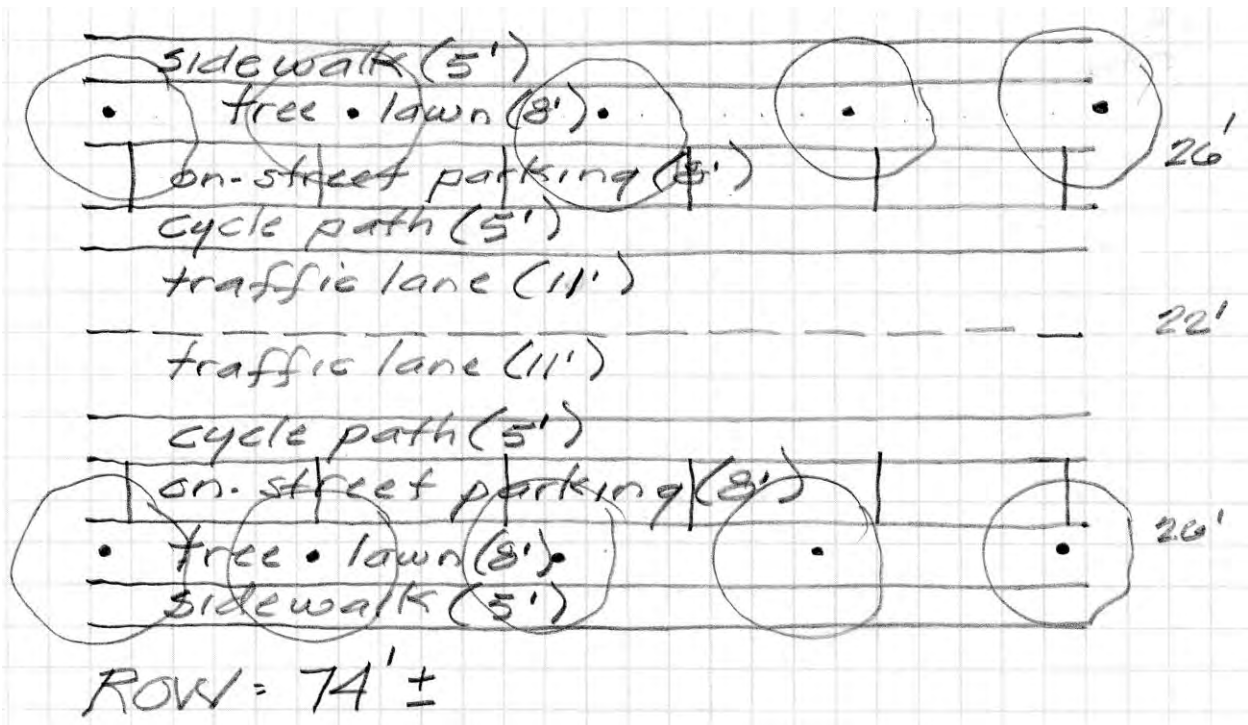 sidewalk (5')
tree lawn (8')
26'
on-street parking (8')
cycle path (5')
traffic lane (11')
22'
traffic lane (11')
cycle path (5')
on-street parking (8')
26'
tree lawn (8')
sidewalk (5')
ROW = 74' ±